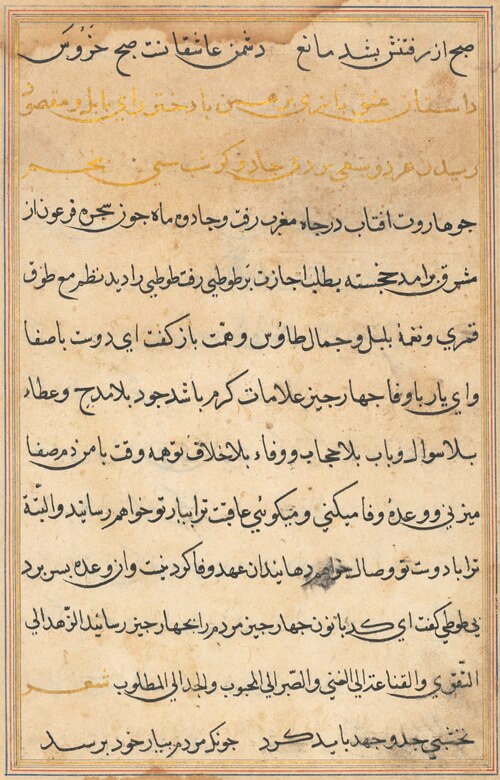 صبح از رفتنش بشد مانع دشمن عاشقانست صبح خروس
داستان عشق بازی برهمن با دختر رای بابل و مقصود
رسیدن مرد و سعی مرد جادو کر شب سی پنجم
جو هاروت افتاب در جاه مغرب رفت و جادوه ماه جون سحره فرعون از
مشرق برامد خجسته بطلب اجازت بر طوطی رفت طوطی را دید نظم مع طوق
قمری و نغمۀ بلبل و جمال طاؤس و همت باز کفت ای دوست باصفا
و ای یار باوفا جهار جیز علامات کرم باشد جود بلا مدح و عطاء
بلا سوال و باب بلا حجاب و وفاء بلا خلاف تو همه وقت با من دم صفا
میزنی و وعدۀ وفا میکنی و میکوئی عاقبت ترا بیار تو خواهم رسانید و البتة
ترا با دوست تو وصال خواهم دهانید ان عهد وفا کرد نیست و ان وعده بسر برد
نی طوطی کفت ای کدبانو جهار جیز مردم را بجهار جیز رسانید الزهد الی
التقوی و القناعة الی الغنی و الصبر الی المحبوب و الجد الی المطلوب شعر
نخشبی جد و جهد باید کرد جونکه مردم بیار خود برسد